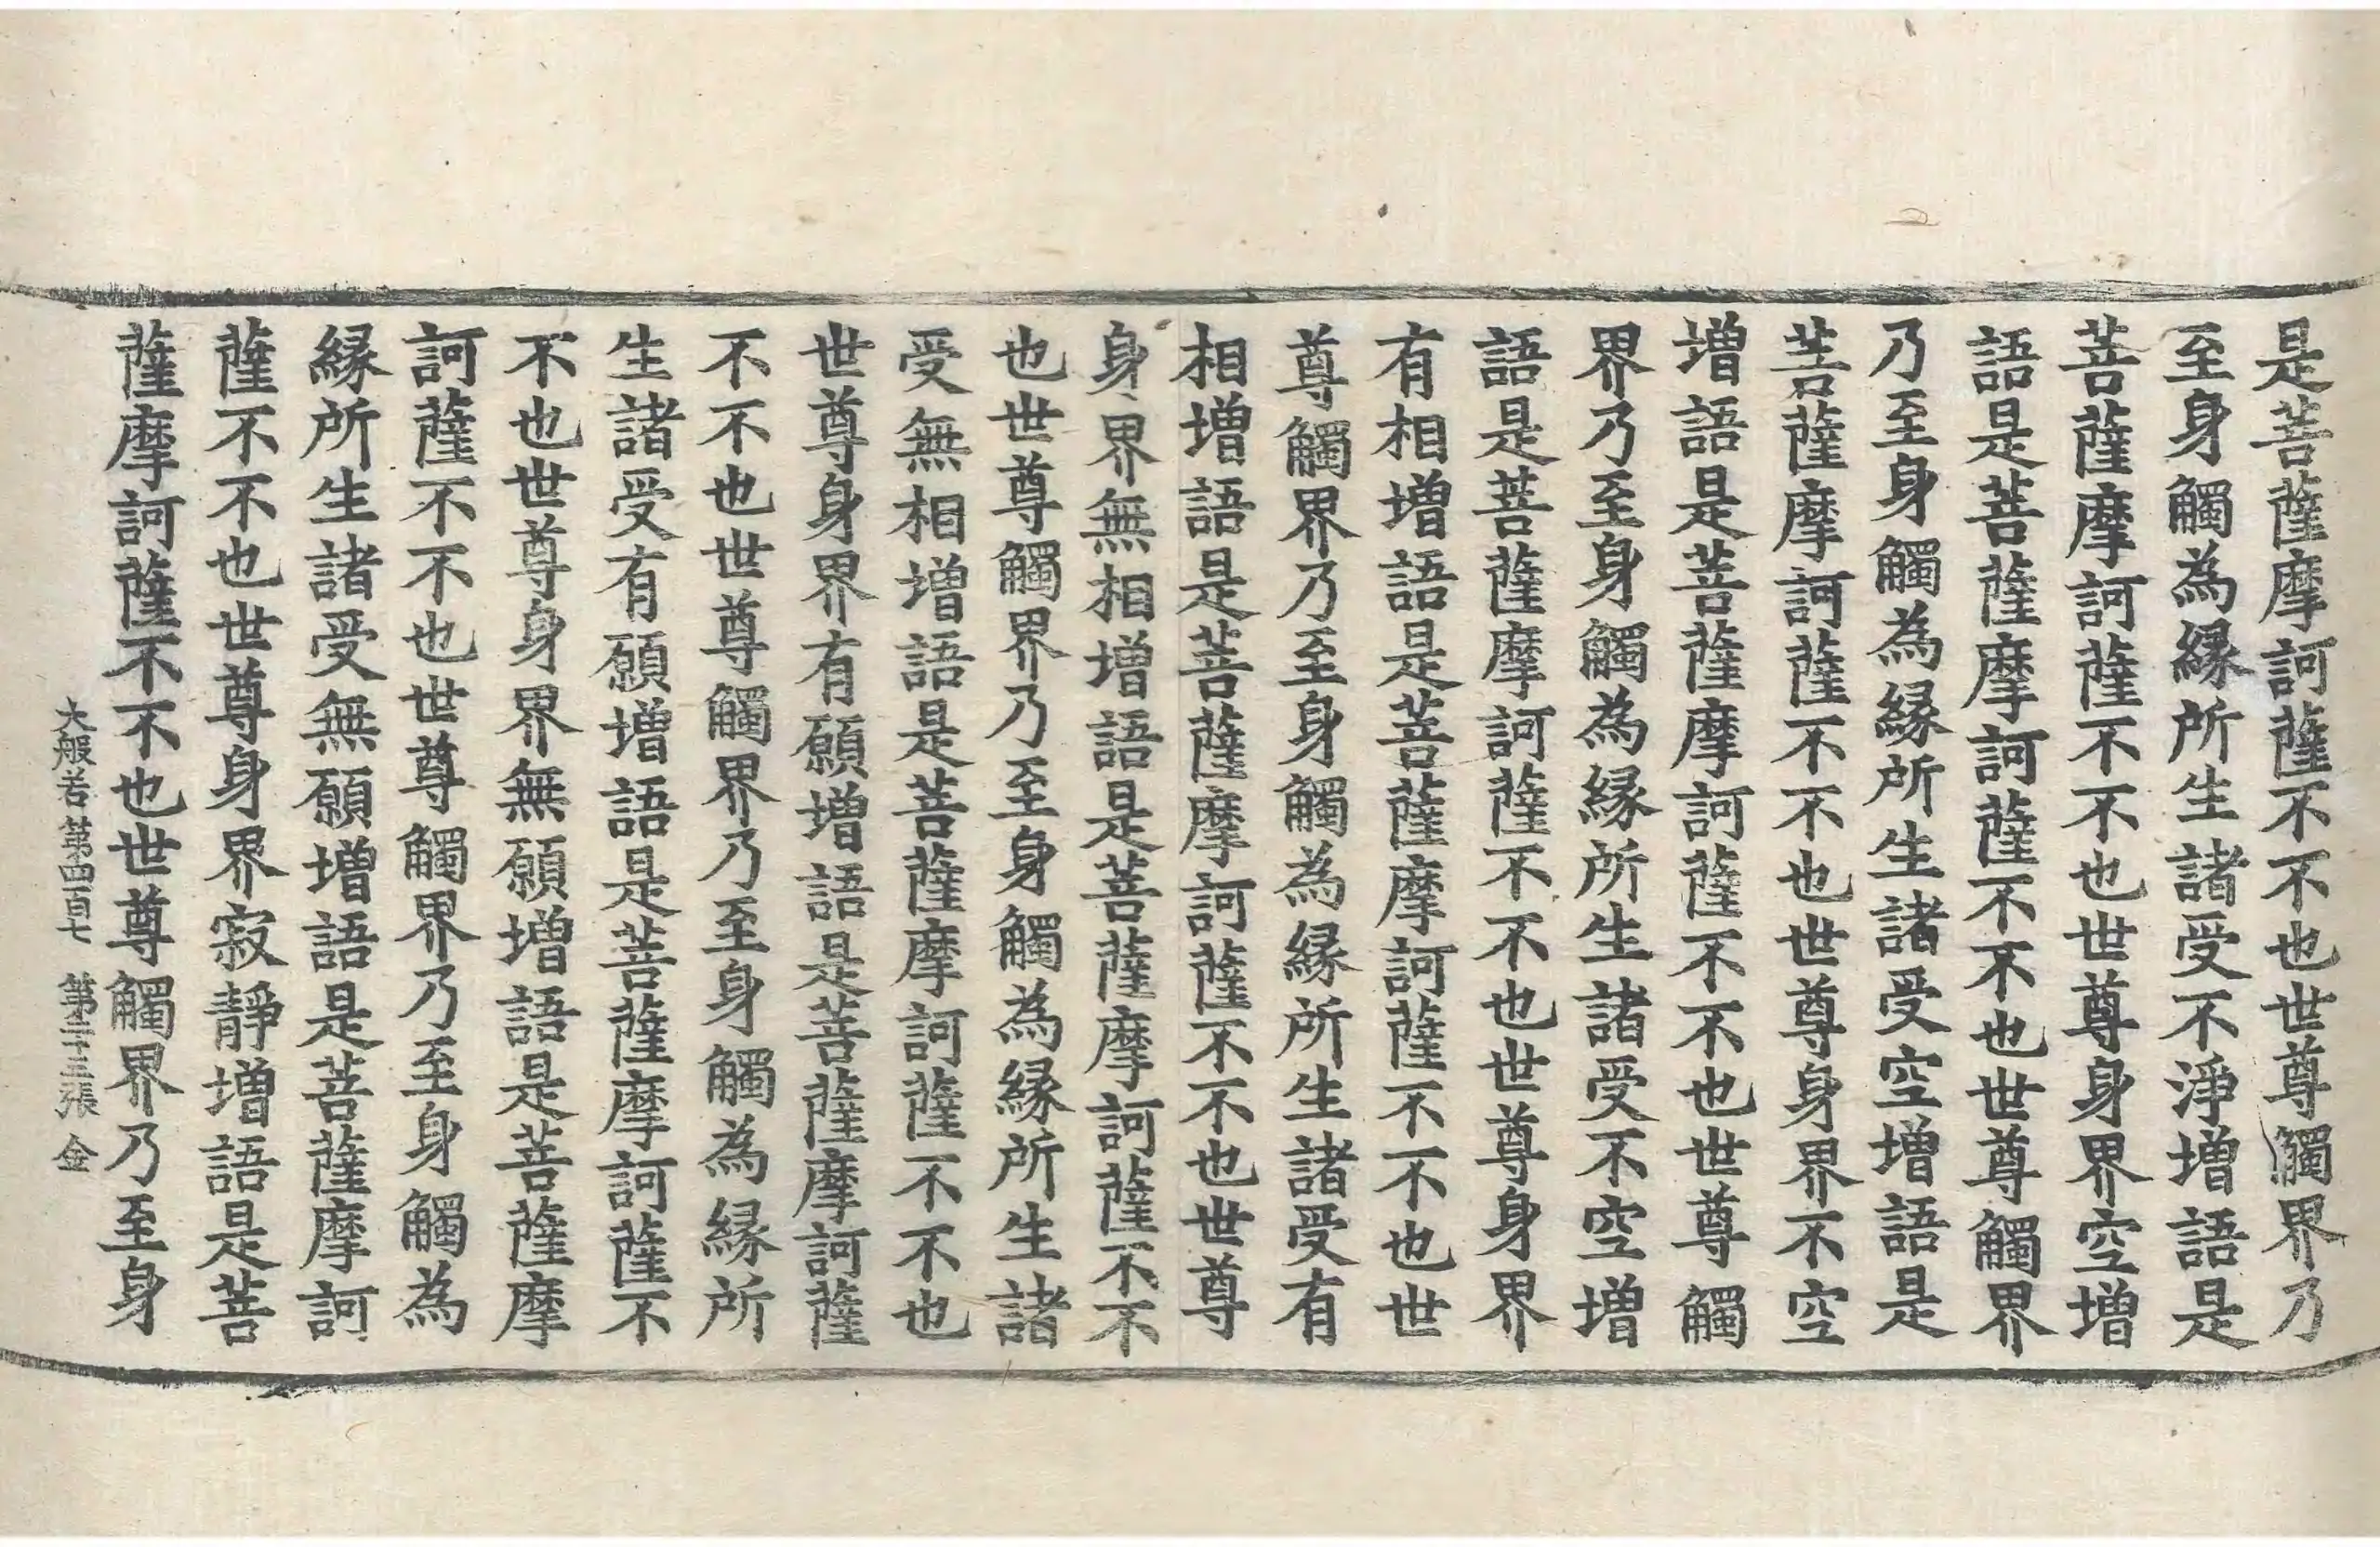 是菩薩摩訶薩不不也世尊觸界乃
至身觸為縁所生諸受不淨增語是
菩薩摩訶薩不不也世尊身界空增
語是菩薩摩訶薩不不也世尊觸界
乃至身觸為縁所生諸受空增語是
菩薩摩訶薩不不也世尊身界不空
增語是菩薩摩訶薩不不也世尊觸
界乃至身觸為縁所生諸受不空增
語是菩薩摩訶薩不不也世尊身界
有相增語是菩薩摩訶薩不不也世
尊觸界乃至身觸為縁所生諸受有
相增語是菩薩摩訶薩不不也世尊
身界無相增語是菩薩摩訶薩不不
也世尊觸界乃至身觸為縁所生諸
受無相增語是菩薩摩訶薩不不也
世尊身界有願增語是菩薩摩訶薩
不不也世尊觸界乃至身觸為縁所
生諸受有願增語是菩薩摩訶薩不
不也世尊身界無願增語是菩薩摩
訶薩不不也世尊觸界乃至身觸為
縁所生諸受無願增語是菩薩摩訶
薩不不也世尊身界寂靜增語是菩
薩摩訶薩不不也世尊觸界乃至身
大般若第四百七 第二十三張 金